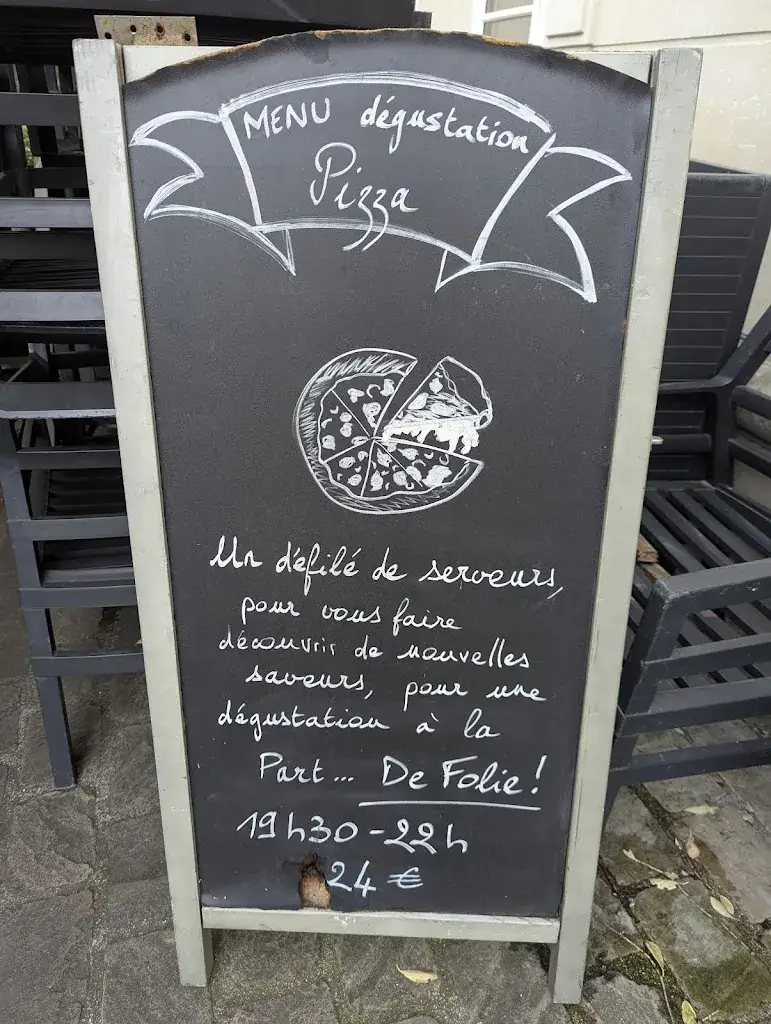 MENU dégustation
Pizza
Un défilé de serveurs,
pour vous faire
découvrir de nouvelles
saveurs, pour une
dégustation à la
Part... De Folie!
19h30-22h
24 €